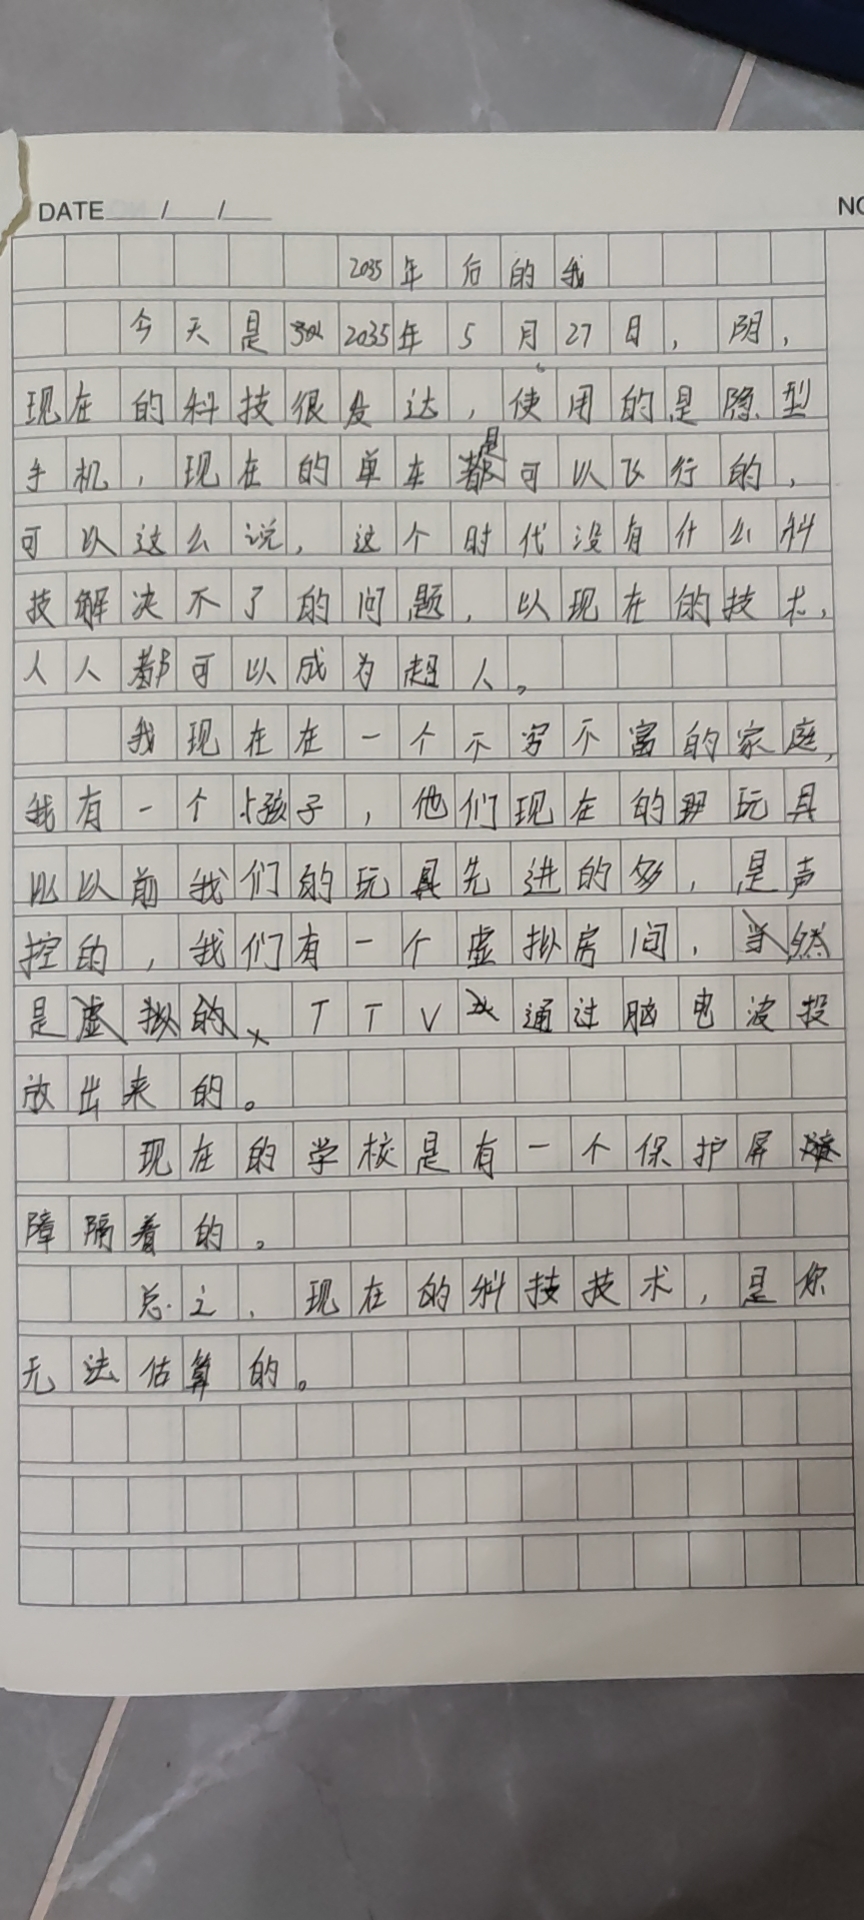 DATE / /
NO
2035年后的我
今天是2035年5月27日，阴，
现在的科技很发达，使用的是隐型
手机，现在的单车都是可以飞行的，
可以这么说，这个时代没有什么科
技解决不了的问题，以现在的技术，
人人都可以成为超人。
我现在在一个不穷不富的家庭，
我有一个小孩子，他们现在的玩具
比以前我们的玩具先进的多，是声
控的，我们有一个虚拟房间，
是TTV通过脑电波投
放出来的。
现在的学校是有一个保护屏
障隔着的。
总之，现在的科技技术，是你
无法估算的。